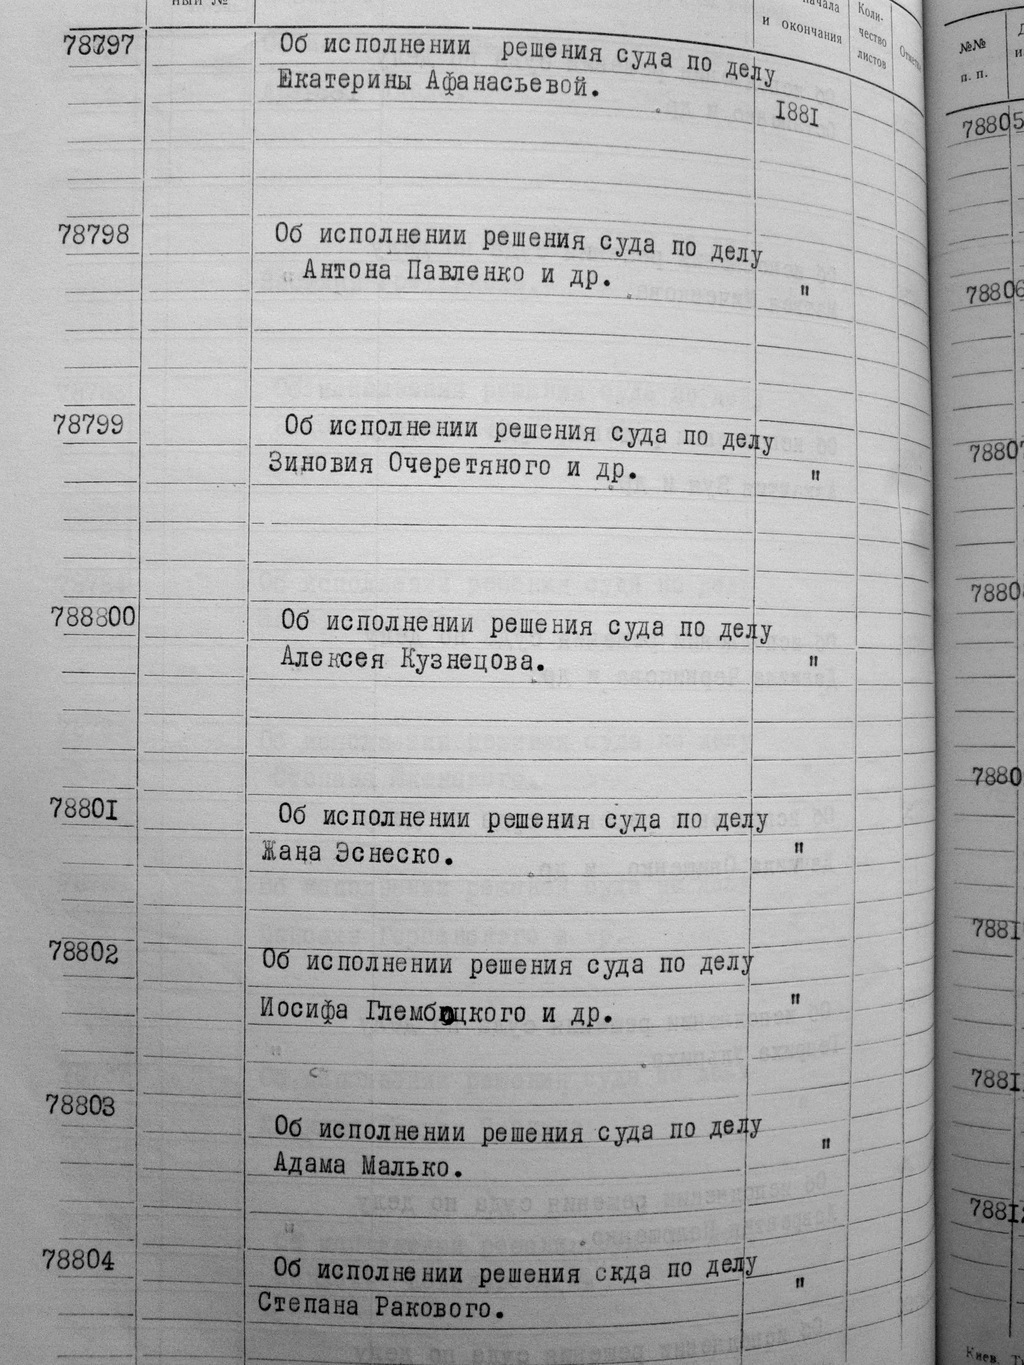 ный №
начала
и окончания
Коли-
чество
листов
78797
Об исполнении решения суда по делу
Екатерины Афанасьевой.
1881
78798
Об исполнении решения суда по делу
Антона Павленко и др.
"
78799
Об исполнении решения суда по делу
Зиновия Очеретяного и др.
"
788800
Об исполнении решения суда по делу
Алексея Кузнецова.
"
78801
Об исполнении решения суда по делу
Жана Эснеско.
"
78802
Об исполнении решения суда по делу
Иосифа Глембоцкого и др.
"
78803
Об исполнении решения суда по делу
Адама Малько.
"
78804
Об исполнении решения скда по делу
Степана Ракового.
"
№№
п. п.
78805
78806
78807
7880
7880
7881
7881
78812
Киев.